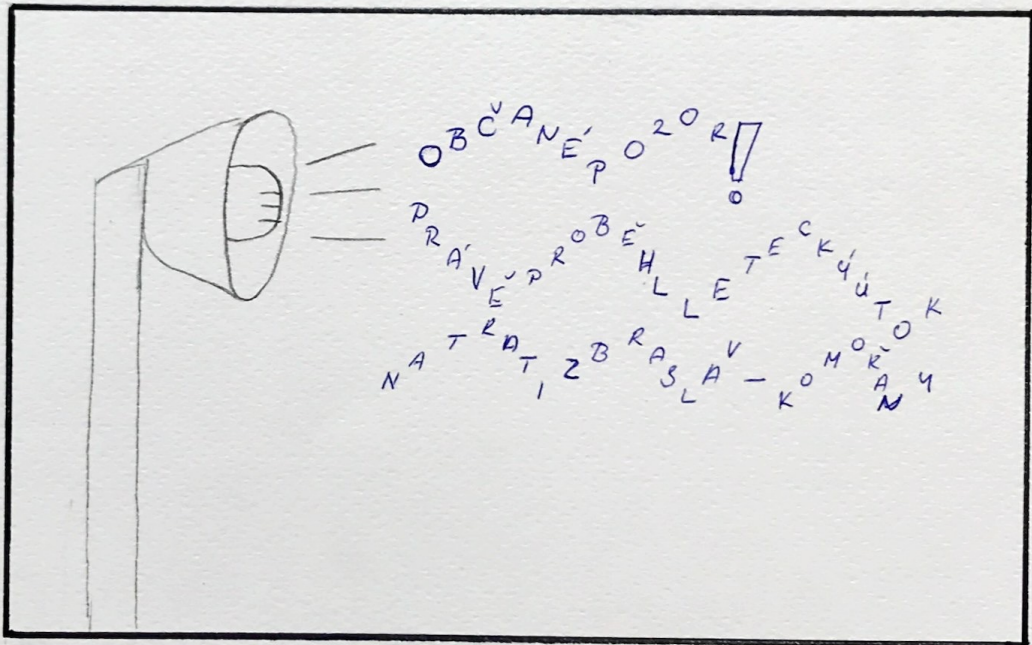 OBČANÉ POZOR!
PRÁVĚ PROBĚHL LETECKÝ ÚTOK
NA TRATI ZBRASLAV – KOMOŘANY